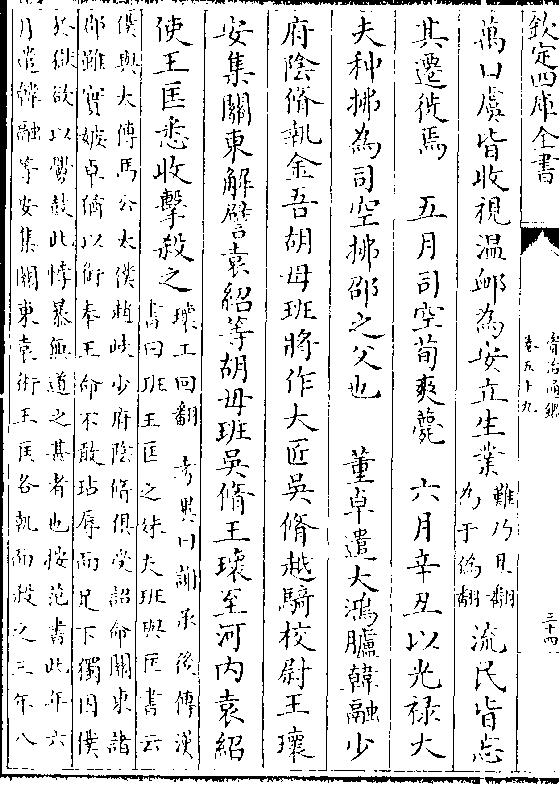 欽定四庫全書
資治通鑑
卷五十九
三十四
萬口虞皆收視温䘏為安立生業難乃旦翻為于偽翻流民皆忘
其遷徙焉　五月司空荀爽薨　六月辛丑以光禄大
夫种拂為司空拂邵之父也　董卓遣大鴻臚韓融少
府陰脩執金吾胡母班將作大匠吳脩越騎校尉王瓌
安集關東解譬袁紹等胡母班吳脩王瓌至河内袁紹
使王匡悉收擊殺之
瓌工回翻　考異曰謝承後傳漢
書曰班王匡之妹夫班與匡書云
僕與太傅馬公太僕趙岐少府陰脩俱受詔命關東諸
郡雖實嫉卓猶以銜奉王命不敢玷辱而足下獨囚僕
於獄欲以釁鼓此悖暴無道之甚者也按范書此年六
月遣韓融等安集關東袁術王匡各執而殺之三年八